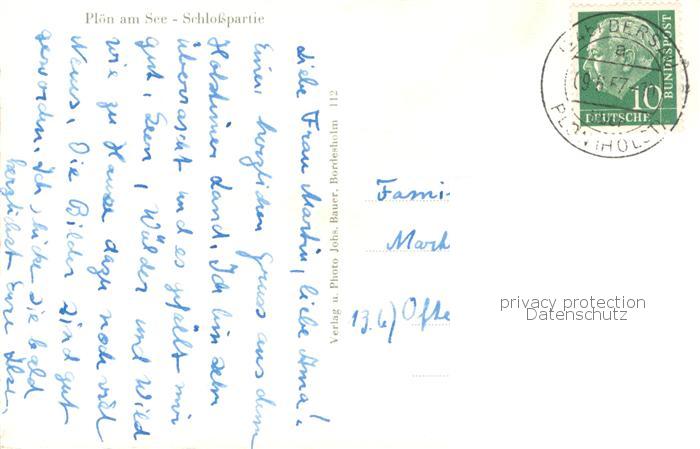 Plön am See - Schloßpartie
Liebe Frau Martin, liebe Ama!
Einen herzlichen Gruss aus dem
Holsteiner Land. Ich bin sehr
überrascht und es gefällt mir
gut, Seen, Wälder und Wild
wie zu Hause dazu noch viel
Neues. Die Bilder sind gut
geworden. Ich schicke sie bald
herzlichst Eure Ilse.
Verlag u. Photo Johs. Bauer, Bordesholm 112
10
DEUTSCHE
BUNDESPOST
PLÖN (HOLST)
Fami
Mark
13b) Ofte
privacy protection
Datenschutz